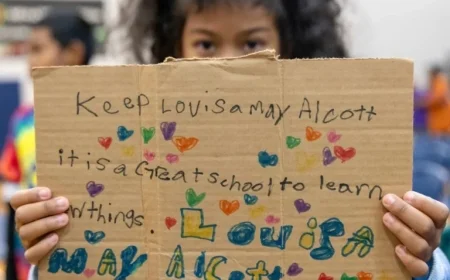 Keep Louisa may Alcott
it is a Great school to learn
things.
LouisA
MAY Alcott